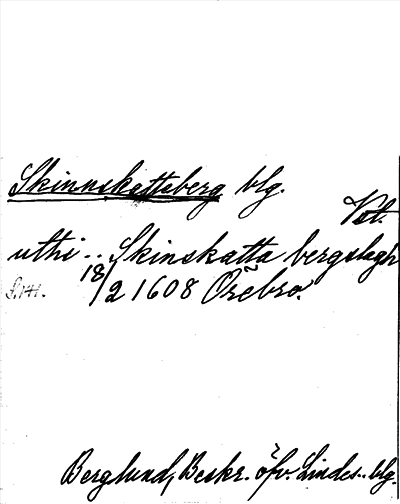 Skinnskatteberg blg.
Vstl.
uthi .. Skinskatta bergslagh
18/2 1608 Örebro.
S. 141.
Berglund, Beskr. öfv. Lindes.. blg.